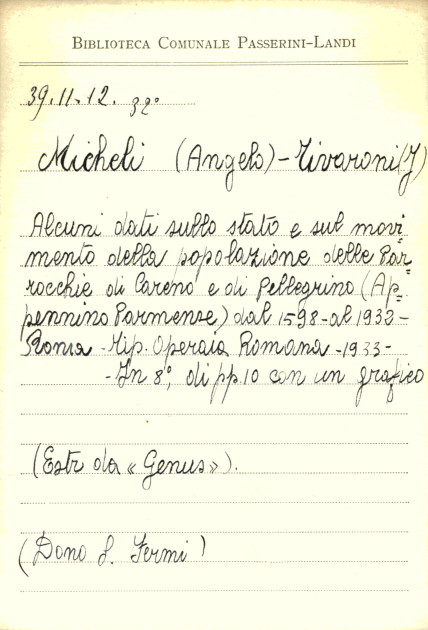 BIBLIOTECA COMUNALE PASSERINI-LANDI
39.11.12. 32°
Micheli (Angelo) - Tivaroni (J)
Alcuni dati sullo stato e sul movi=
mento della popolazione delle Par=
rocchie di Careno e di Pellegrino (Ap=
pennino Parmense) dal 1598-al 1932-
Roma - Tip. Operaia Romana - 1933-
- In 8°, di pp. 10 con un grafico
(Estr da « Genus»).
(Dono S. Fermi)